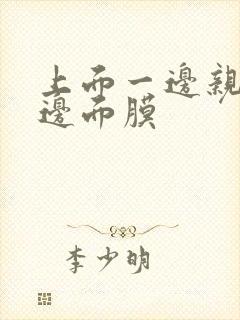 上而一邊親
邊而膜
李少明